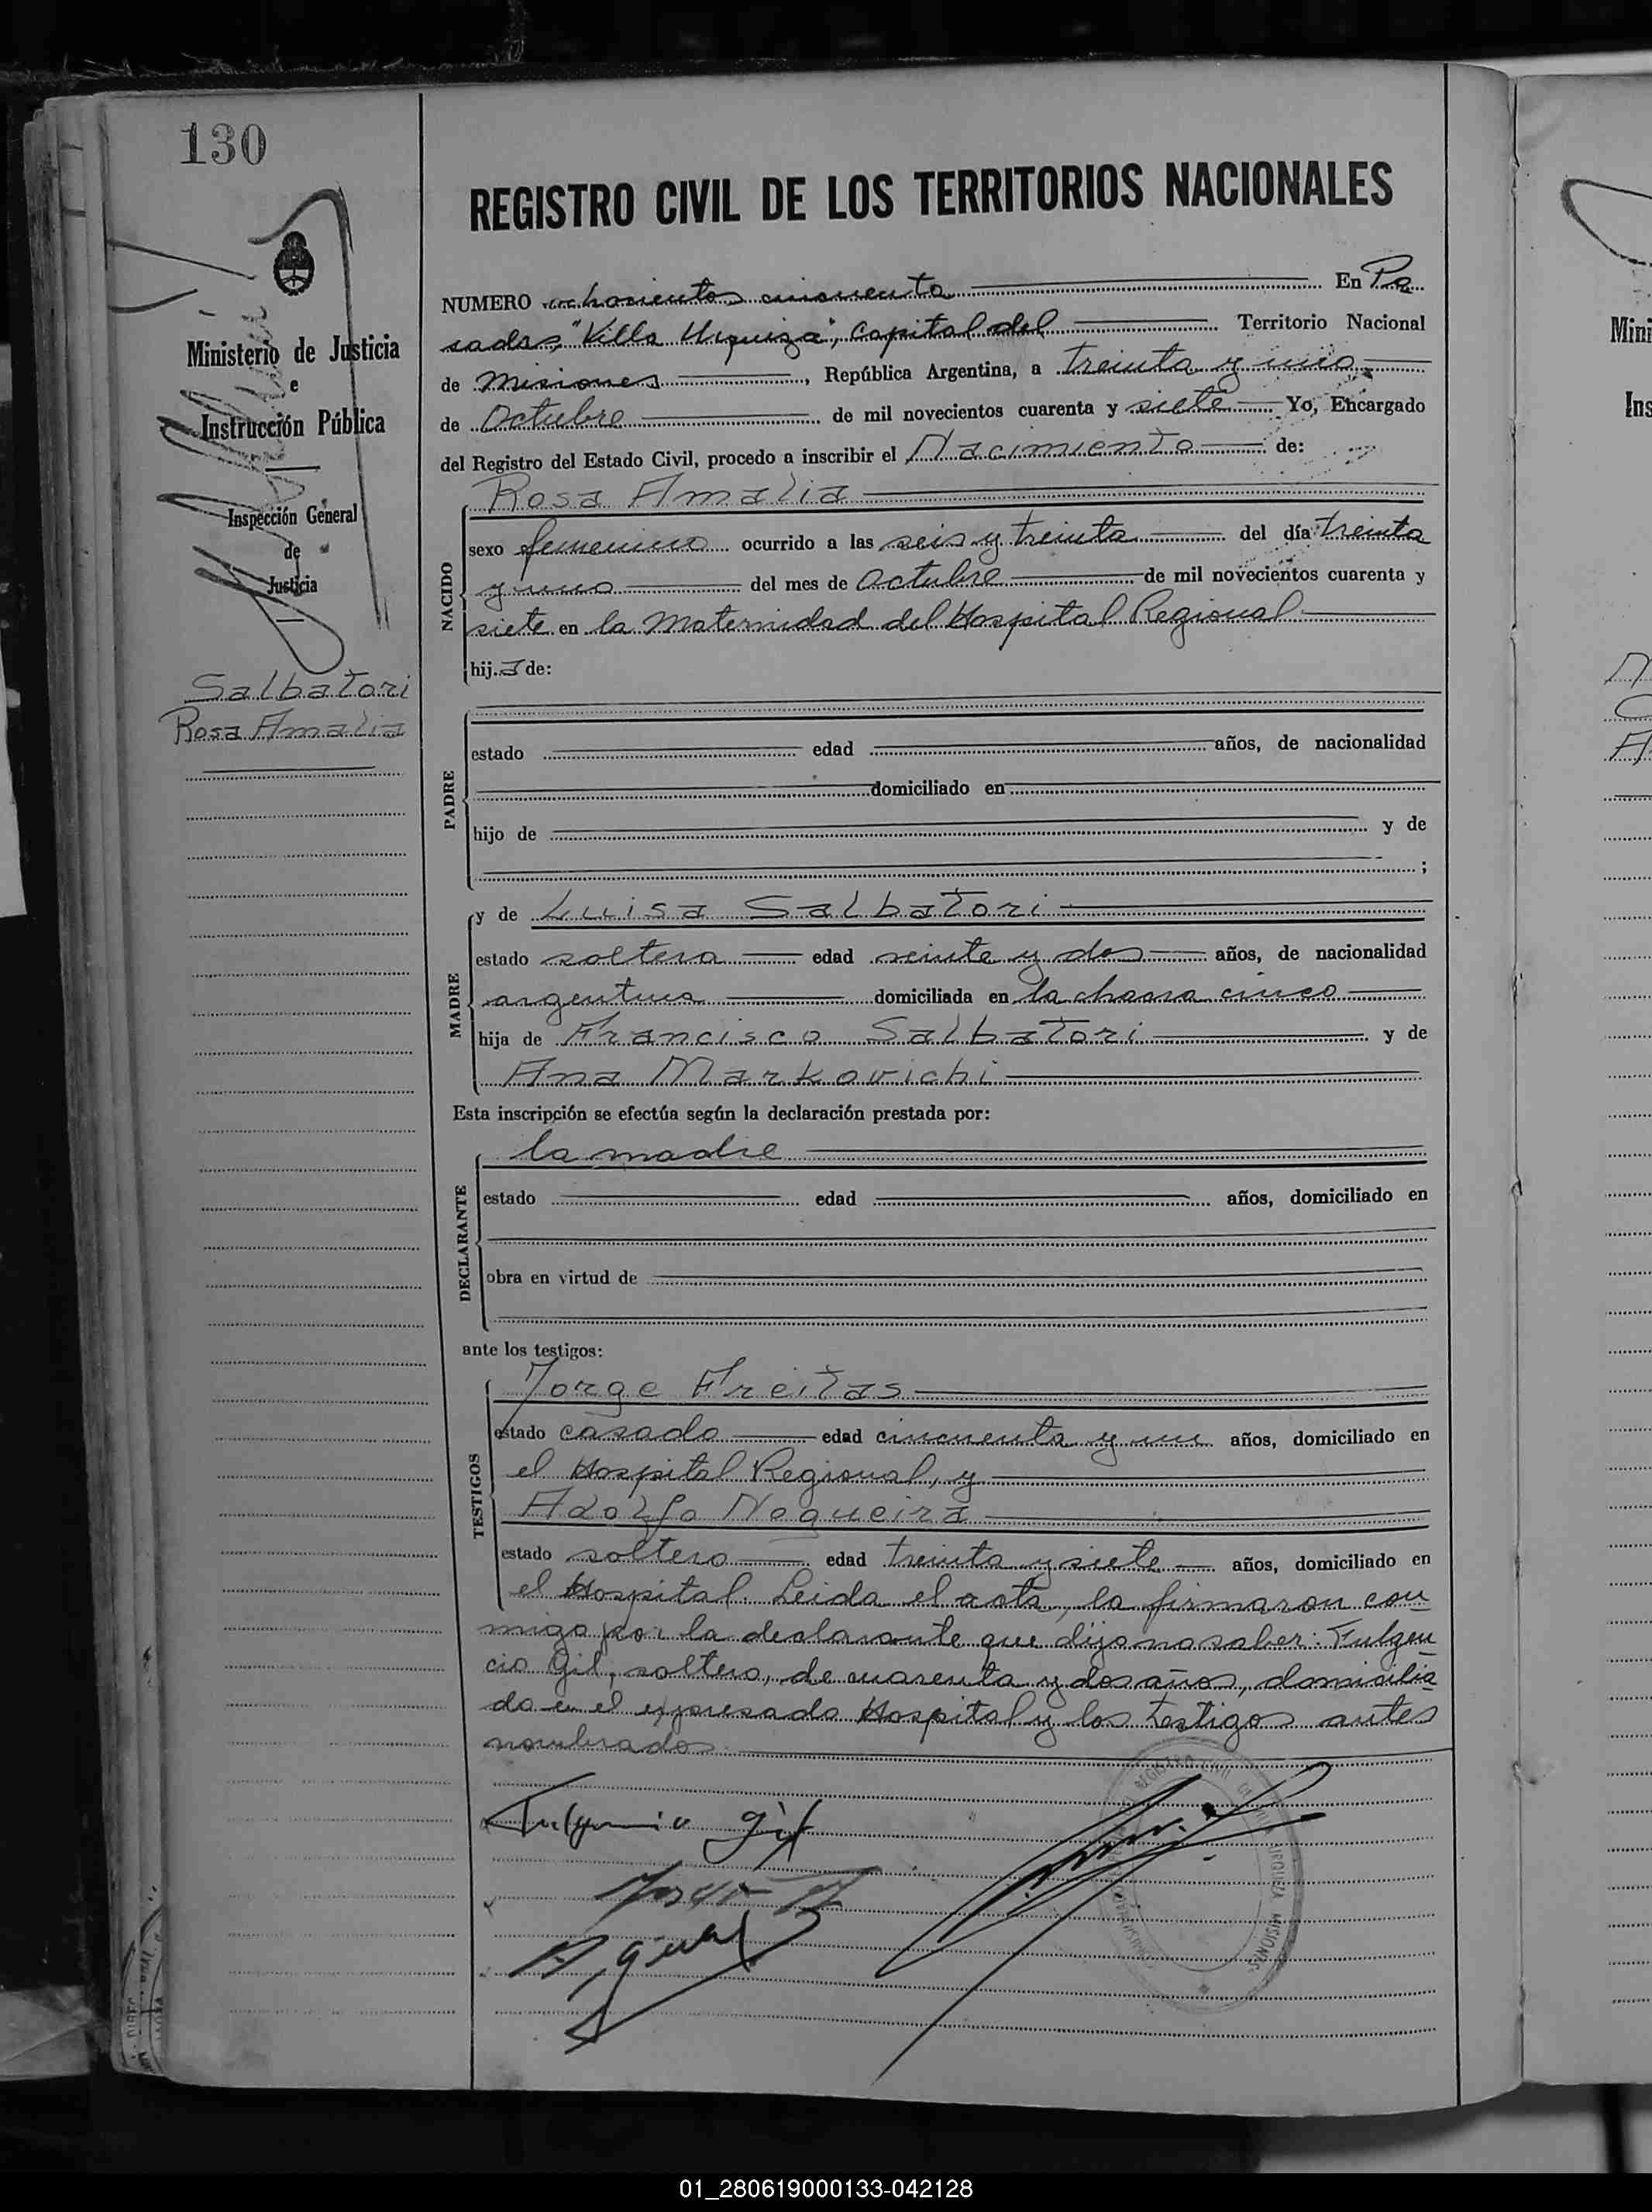 130
REGISTRO CIVIL DE LOS TERRITORIOS NACIONALES
NUMERO ochocientos cincuenta En Po
sadas, "Villa Urquiza", Capital del Territorio Nacional
de Misiones, República Argentina, a treinta y uno
de Octubre de mil novecientos cuarenta y siete Yo, Encargado
del Registro del Estado Civil, procedo a inscribir el Nacimiento de:
Ministerio de Justicia
e
Instrucción Pública
Inspección General
de
Justicia
Salbatori
Rosa Amalia
NACIDO
Rosa Amalia
sexo femenino ocurrido a las seis y treinta del día treinta
y uno del mes de Octubre de mil novecientos cuarenta y
siete en la Maternidad del Hospital Regional
hija de:
PADRE
estado edad años, de nacionalidad
domiciliado en
hijo de y de
;
MADRE
y de Luisa Salbatori
estado soltera edad veinte y dos años, de nacionalidad
argentina domiciliada en la chacra cinco
hija de Francisco Salbatori y de
Ana Markovichi
Esta inscripción se efectúa según la declaración prestada por:
DECLARANTE
la madre
estado edad años, domiciliado en
obra en virtud de
ante los testigos:
TESTIGOS
Jorge Freitas
estado casado edad cincuenta y un años, domiciliado en
el Hospital Regional, y
Adolfo Nogueira
estado soltero edad treinta y siete años, domiciliado en
el Hospital. Leida el acta, la firmaron con
migo por la declarante que dijo no saber: Fulgen
cio Gil, soltero, de cuarenta y dos años, domicilia
do en el expresado Hospital y los testigos antes
nombrados.
Fulgencio Gil
REGISTRO CIVIL
URQUIZA MISIONES
Mini
Ins
01_280619000133-042128